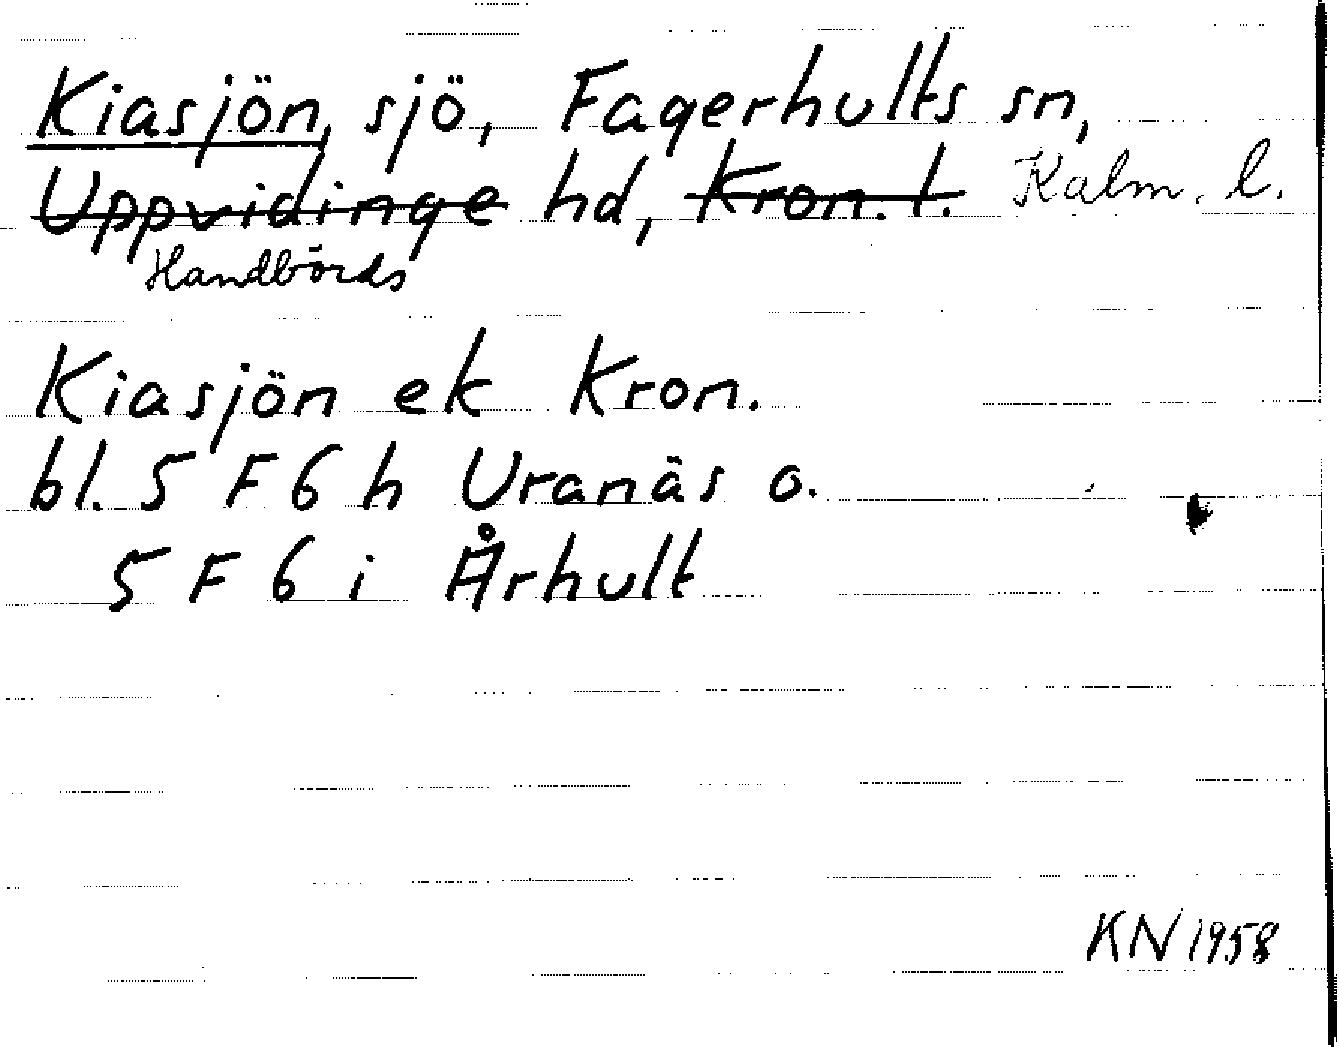 Kiasjön, sjö, Fagerhults sn,
Uppvidinge hd, Kron. l. Kalm. l.
Handbörds
Kiasjön ek Kron.
bl. 5 F 6 h Uranäs o.
5 F 6 i Århult
KN 1958